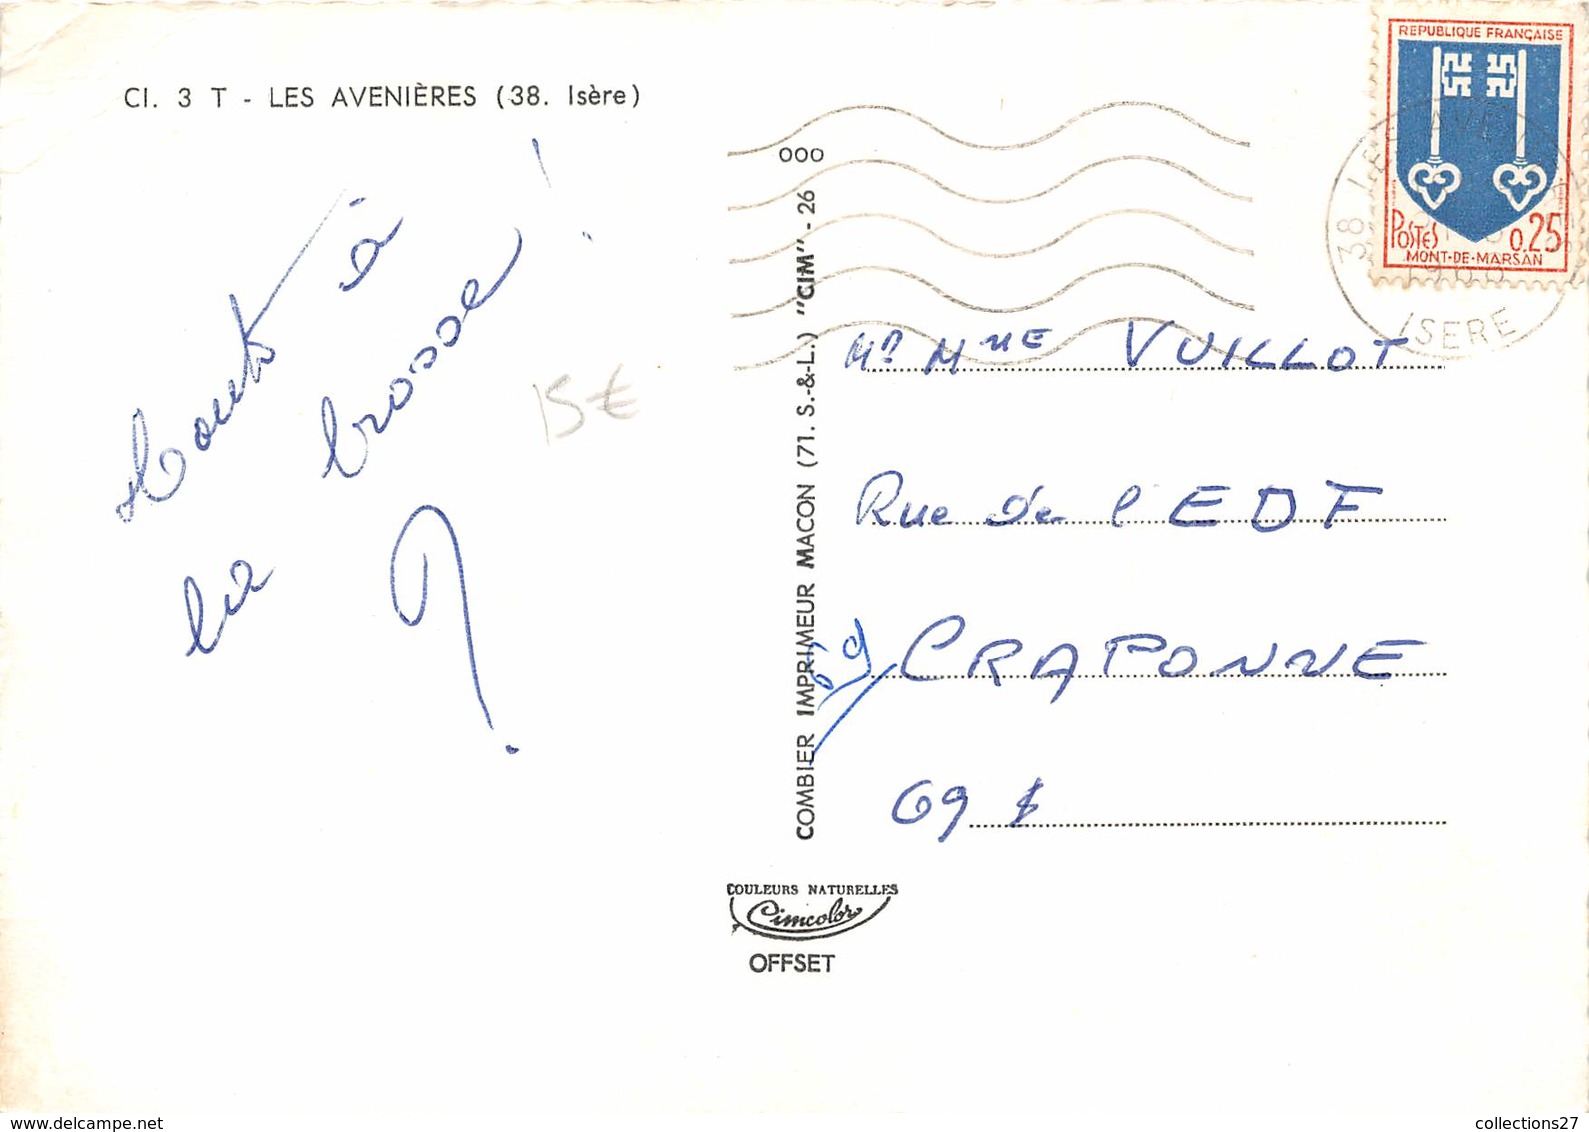 Cl. 3 T - LES AVENIÈRES (38. Isère)
à
la brosse !
15 €
COMBIER IMPRIMEUR MACON (71. S.-&-L.) "CIM" - 26
000
COULEURS NATURELLES
Cimcolor
OFFSET
REPUBLIQUE FRANÇAISE
POSTES 0.25
MONT-DE-MARSAN
38 LES AVENIERES
1968
ISERE
Mr Mme VUILLOT
Rue de l'EDF
69 CRAPONNE
69
collections27